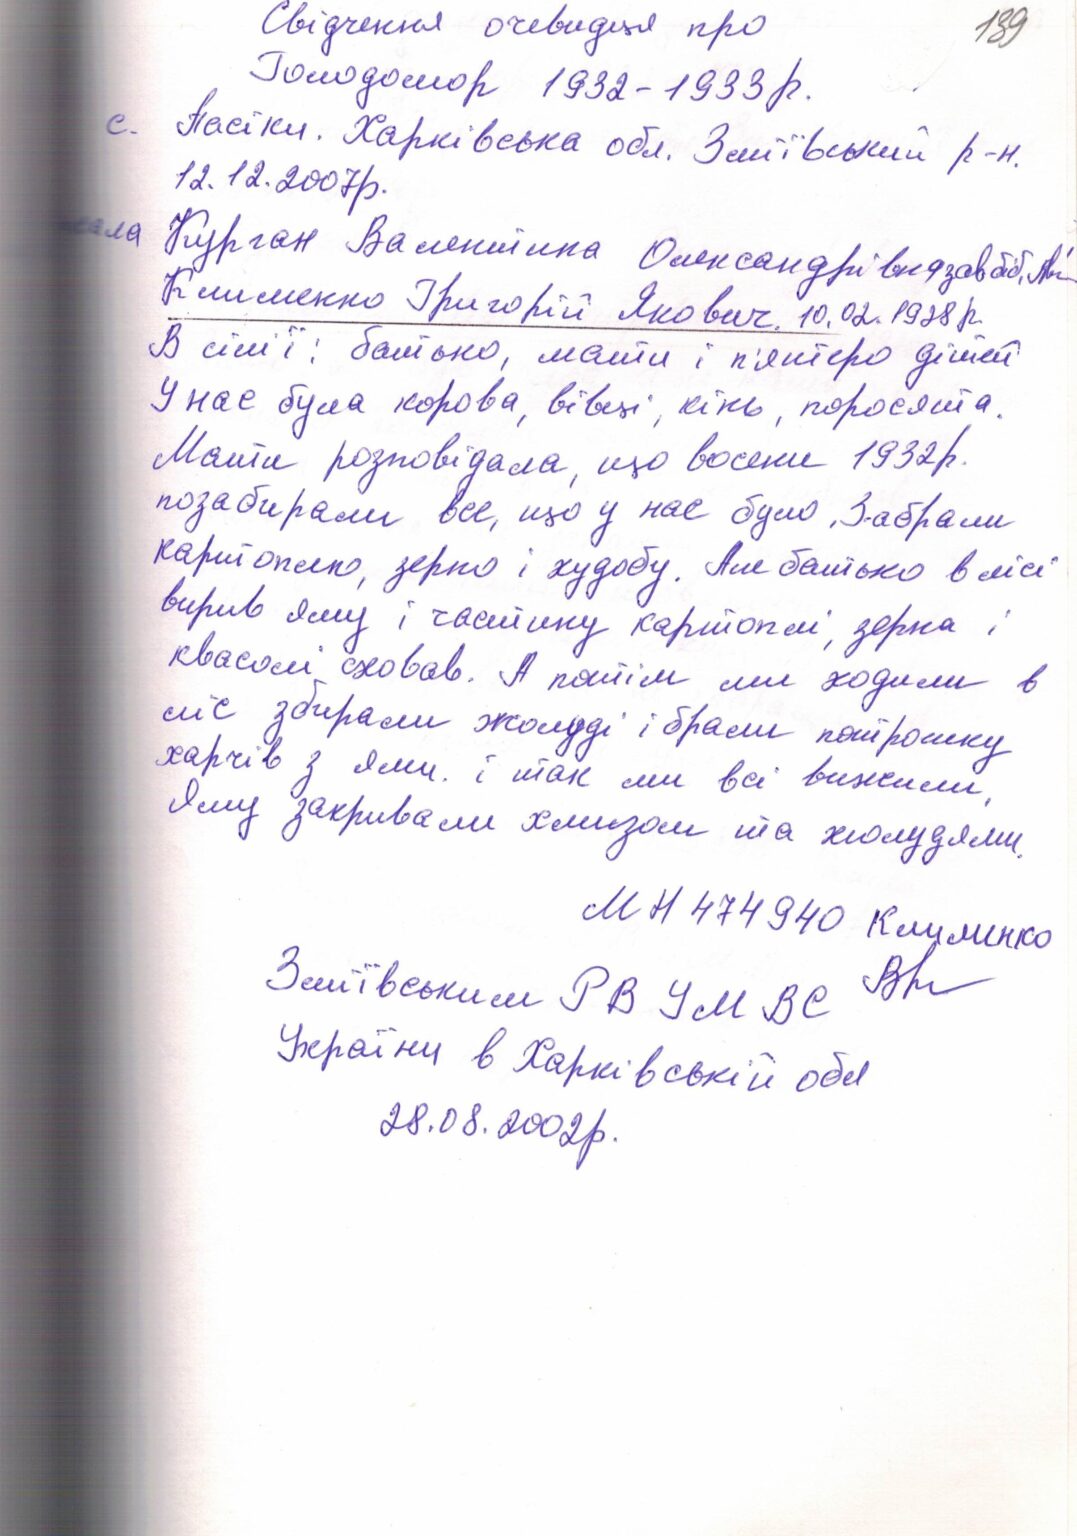 139
Свідчення очевидця про
Голодомор 1932-1933р.
с. Пасіки. Харківська обл. Зміївський р-н.
12.12.2007р.
Курган Валентина Олександрівна зав. біб.
Клименко Григорій Якович. 10.02.1928р.
В сім'ї: батько, мати і п'ятеро дітей
У нас була корова, вівці, кінь, поросята.
Мати розповідала, що восени 1932р.
позабирали все, що у нас було. Забрали
картоплю, зерно і худобу. Але батько в лісі
вирив яму і частину картоплі, зерна і
квасолі сховав. А потім ми ходили в
ліс збирали жолуді і брали потрошку
харчів з ями. і так ми всі вижили.
Яму закривали хмизом та жолудями.
МН 474940 Клименко
Зміївським РВ УМВС
України в Харківській обл
28.08.2002р.